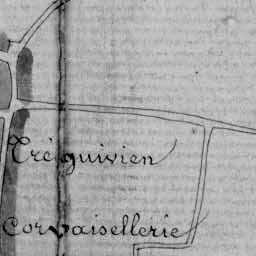 Tréguivien
Corvaisellerie